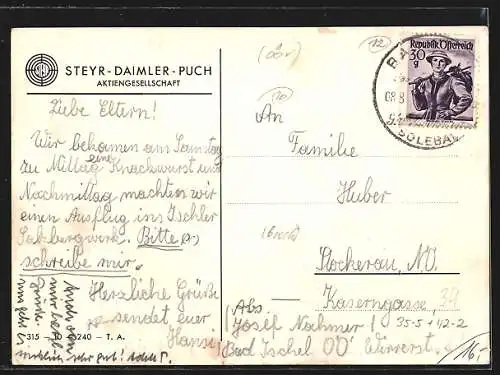 STEYR-DAIMLER-PUCH
AKTIENGESELLSCHAFT
Liebe Eltern!
Wir bekamen am Samstag
zu Mittag eine Knackwurst und
Nachmittag machten wir
einen Ausflug ins Ischler
Salzbergwerk. Bitte
schreibe mir.
Herzliche Grüße
sendet euer
Hansi
315
240 - T. A.
sehr gut!
Republik Österreich
30 g
SOLEBAD
12
10
An
Familie
Huber
Stockerau, N.Ö.
Kaserngasse, 39
Abs.
Josef Nachmer 35-5+12-2
Bad Ischl OÖ Wirerstr.
16,-